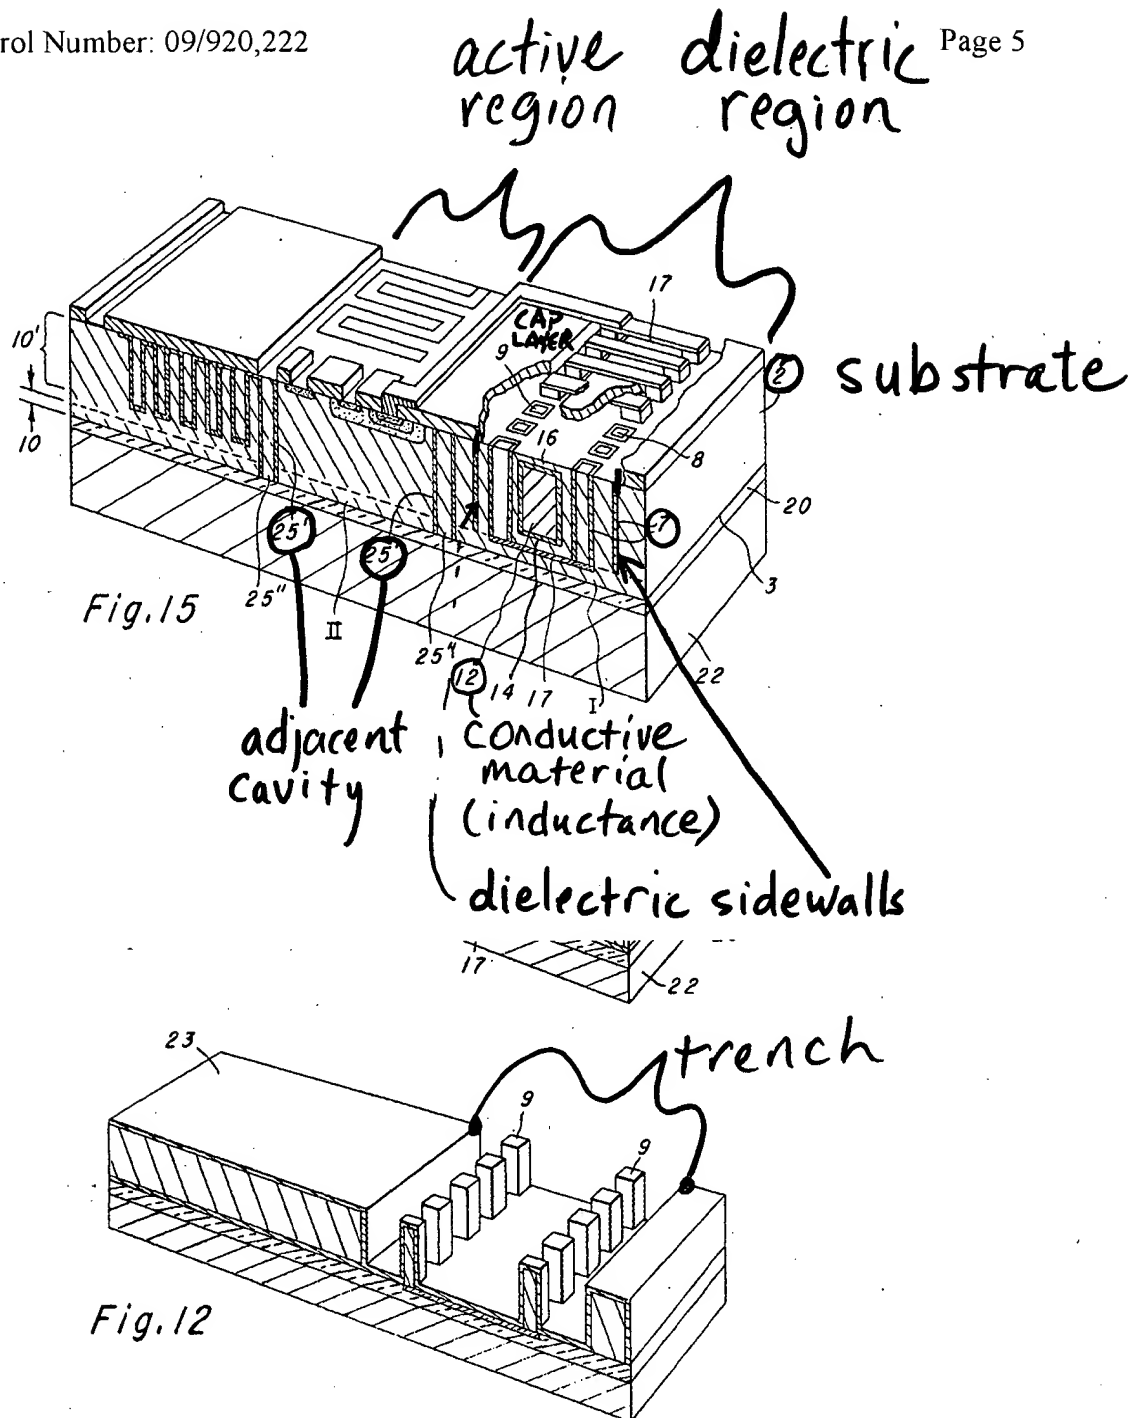 rol Number: 09/920,222
Page 5
active dielectric
region region
17
CAP
LAYER
9
10'
2 substrate
10
16
8
20
7
25' 25'
3
25"
Fig.15
II
25"
22
12 14 17 I
adjacent
cavity
conductive
material
(inductance)
dielectric sidewalls
17
22
23
trench
9
9
Fig.12